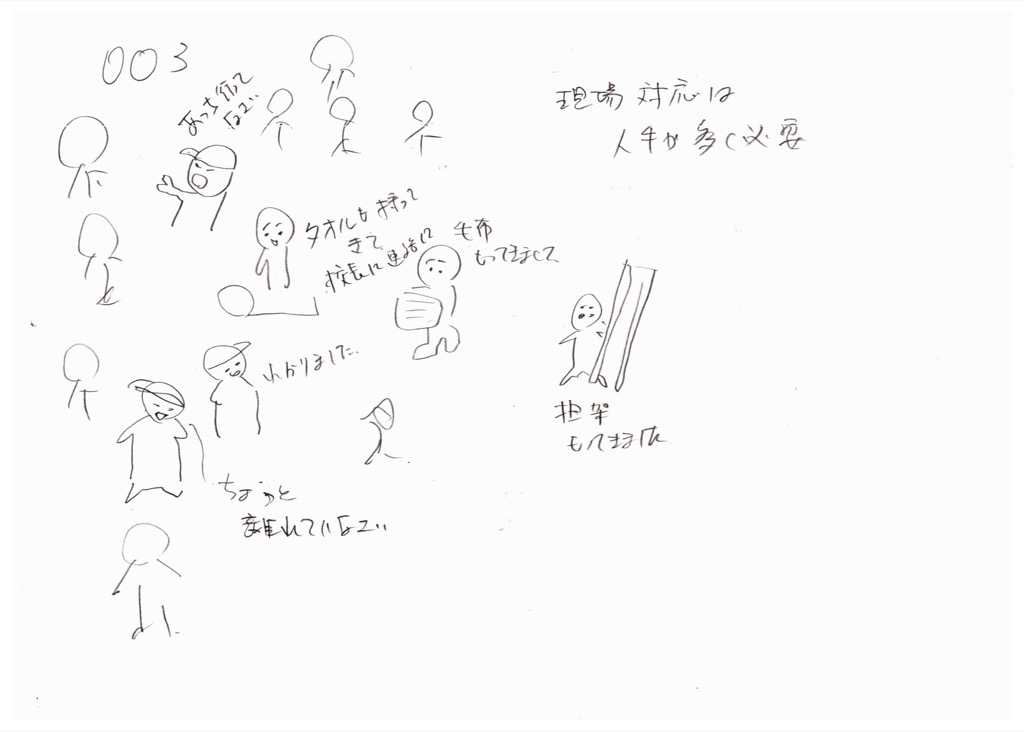 003
あっち行って
なさい
現場対応は
人手が多く必要
タオルも持って
きて
校長に連絡に
毛布
もってきまして
わかりました
担架
もってきました
ちょっと
離れていなさい